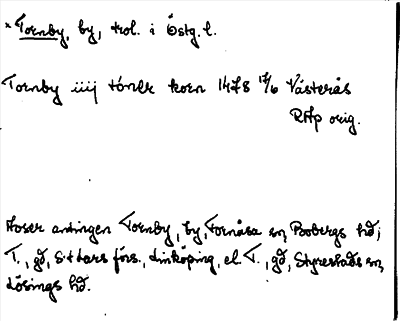 * Tornby, by, trol. i Östg. l.
Tornby iiij tóner korn 1478 17/6 Västerås
RAp orig.
Avser antingen Tornby, by, Fornåsa sn, Bobergs hd;
T., gd, S:t Lars förs., Linköping, el. T., gd, Styrestads sn,
Lösings hd.